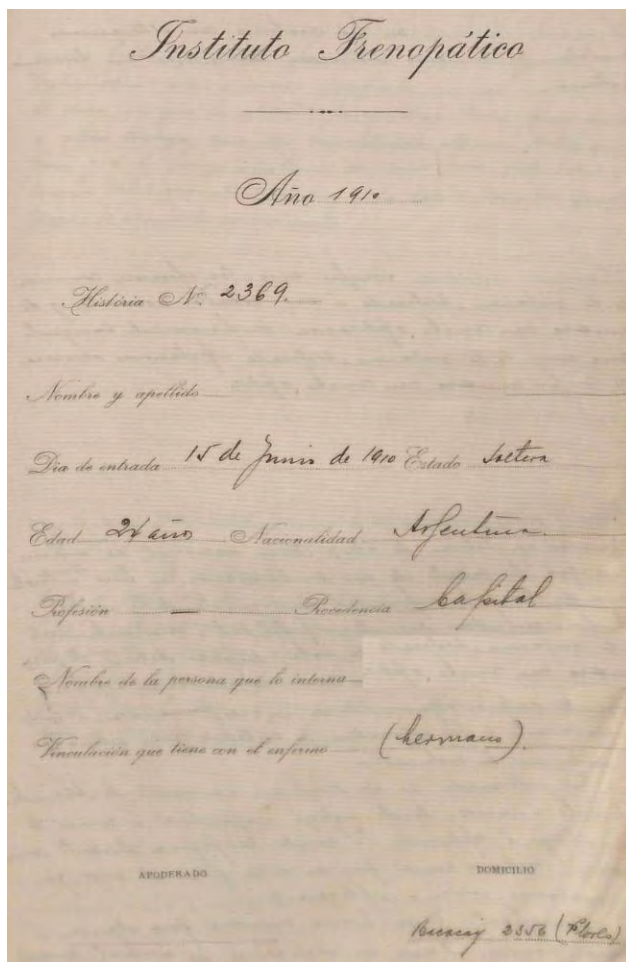 Instituto Frenopático
Año 1910
História Nº 2369.
Nombre y apellido
Dia de entrada 15 de Junio de 1910 Estado Soltera
Edad años Nacionalidad Argentina.
Profisión — Procedencia Capital
Nombre de la persona que lo interna
Vinculación que tiene con el enfermo (hermano).
APODERADO DOMICILIO
2356 (Flores)